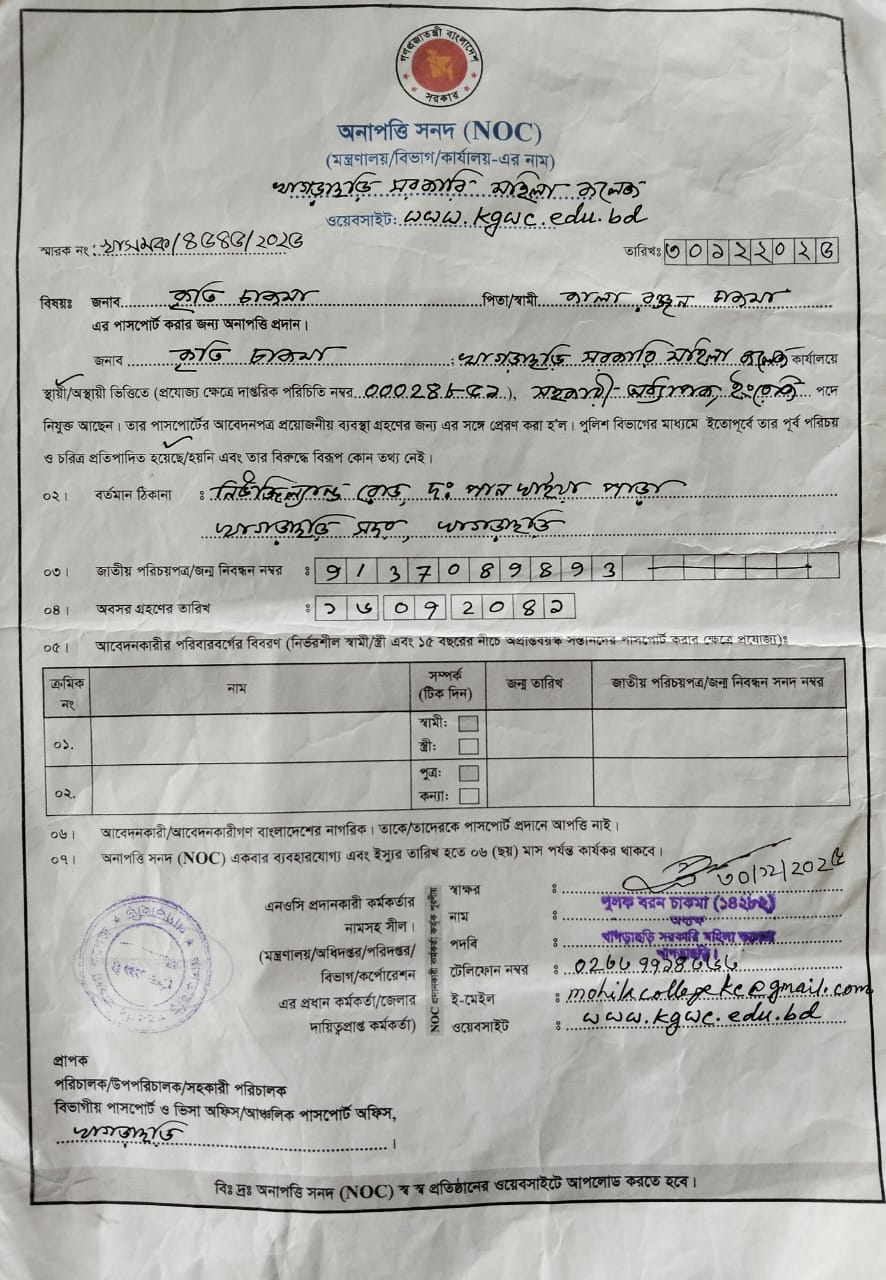 গণপ্রজাতন্ত্রী বাংলাদেশ
সরকার
অনাপত্তি সনদ (NOC)
(মন্ত্রণালয়/বিভাগ/কার্যালয়-এর নাম)
খাগড়াছড়ি সরকারি মহিলা কলেজ
ওয়েবসাইট: www.kgwc.edu.bd
স্মারক নং: খাসমক/ /২০২৫
তারিখঃ ৩০১২২০২৫
বিষয়ঃ জনাব কৃতি চাকমা পিতা/স্বামী কালা রঞ্জন চাকমা
এর পাসপোর্ট করার জন্য অনাপত্তি প্রদান।
জনাব কৃতি চাকমা : খাগড়াছড়ি সরকারি মহিলা কলেজ কার্যালয়ে
স্থায়ী/অস্থায়ী ভিত্তিতে (প্রযোজ্য ক্ষেত্রে দাপ্তরিক পরিচিতি নম্বর ), সহকারী অধ্যাপক, ইংরেজি পদে
নিযুক্ত আছেন। তার পাসপোর্টের আবেদনপত্র প্রয়োজনীয় ব্যবস্থা গ্রহণের জন্য এর সঙ্গে প্রেরণ করা হ'ল। পুলিশ বিভাগের মাধ্যমে ইতোপূর্বে তার পূর্ব পরিচয়
ও চরিত্র প্রতিপাদিত হয়েছে/হয়নি এবং তার বিরুদ্ধে বিরূপ কোন তথ্য নেই।
০২। বর্তমান ঠিকানা : রোড, দঃ পান খাইয়া পাড়া
খাগড়াছড়ি সদর, খাগড়াছড়ি
০৩। জাতীয় পরিচয়পত্র/জন্ম নিবন্ধন নম্বর : 9137089893
০৪। অবসর গ্রহণের তারিখ :
০৫। আবেদনকারীর পরিবারবর্গের বিবরণ (নির্ভরশীল স্বামী/স্ত্রী এবং ১৫ বছরের নীচে অপ্রাপ্তবয়স্ক সন্তানদের পাসপোর্ট করার ক্ষেত্রে প্রযোজ্য):
ক্রমিক নং নাম সম্পর্ক (টিক দিন) জন্ম তারিখ জাতীয় পরিচয়পত্র/জন্ম নিবন্ধন সনদ নম্বর
০১. স্বামী:
স্ত্রী:
০২. পুত্র:
কন্যা:
০৬। আবেদনকারী/আবেদনকারীগণ বাংলাদেশের নাগরিক। তাকে/তাদেরকে পাসপোর্ট প্রদানে আপত্তি নাই।
০৭। অনাপত্তি সনদ (NOC) একবার ব্যবহারযোগ্য এবং ইস্যুর তারিখ হতে ০৬ (ছয়) মাস পর্যন্ত কার্যকর থাকবে।
এনওসি প্রদানকারী কর্মকর্তার
নামসহ সীল।
(মন্ত্রণালয়/অধিদপ্তর/পরিদপ্তর/
বিভাগ/কর্পোরেশন
এর প্রধান কর্মকর্তা/জেলার
দায়িত্বপ্রাপ্ত কর্মকর্তা)
NOC প্রদানকারী কর্মকর্তা কর্তৃক পূরণীয়
স্বাক্ষর : ৩০/১২/২০২৫
নাম : পুলক বরন চাকমা
পদবি : অধ্যক্ষ
খাগড়াছড়ি সরকারি মহিলা কলেজ
খাগড়াছড়ি।
টেলিফোন নম্বর :
ই-মেইল : mohilacollegekc@gmail.com
ওয়েবসাইট : www.kgwc.edu.bd
প্রাপক
পরিচালক/উপপরিচালক/সহকারী পরিচালক
বিভাগীয় পাসপোর্ট ও ভিসা অফিস/আঞ্চলিক পাসপোর্ট অফিস,
খাগড়াছড়ি।
বিঃ দ্রঃ অনাপত্তি সনদ (NOC) স্ব স্ব প্রতিষ্ঠানের ওয়েবসাইটে আপলোড করতে হবে।